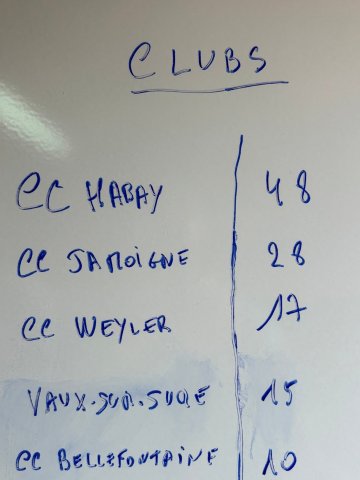 CLUBS
CC HABAY 48
CC JAMOIGNE 28
CC WEYLER 17
VAUX-SUR-SURE 15
CC BELLEFONTAINE 10